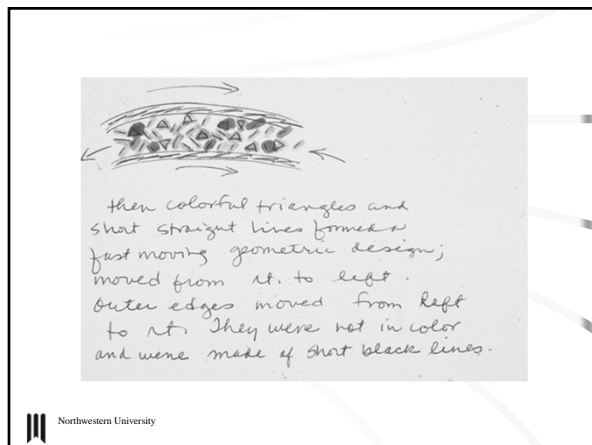 then colorful triangles and
short straight lines formed a
fast moving geometric design;
moved from rt. to left.
Outer edges moved from left
to rt. They were not in color
and were made of short black lines.
Northwestern University